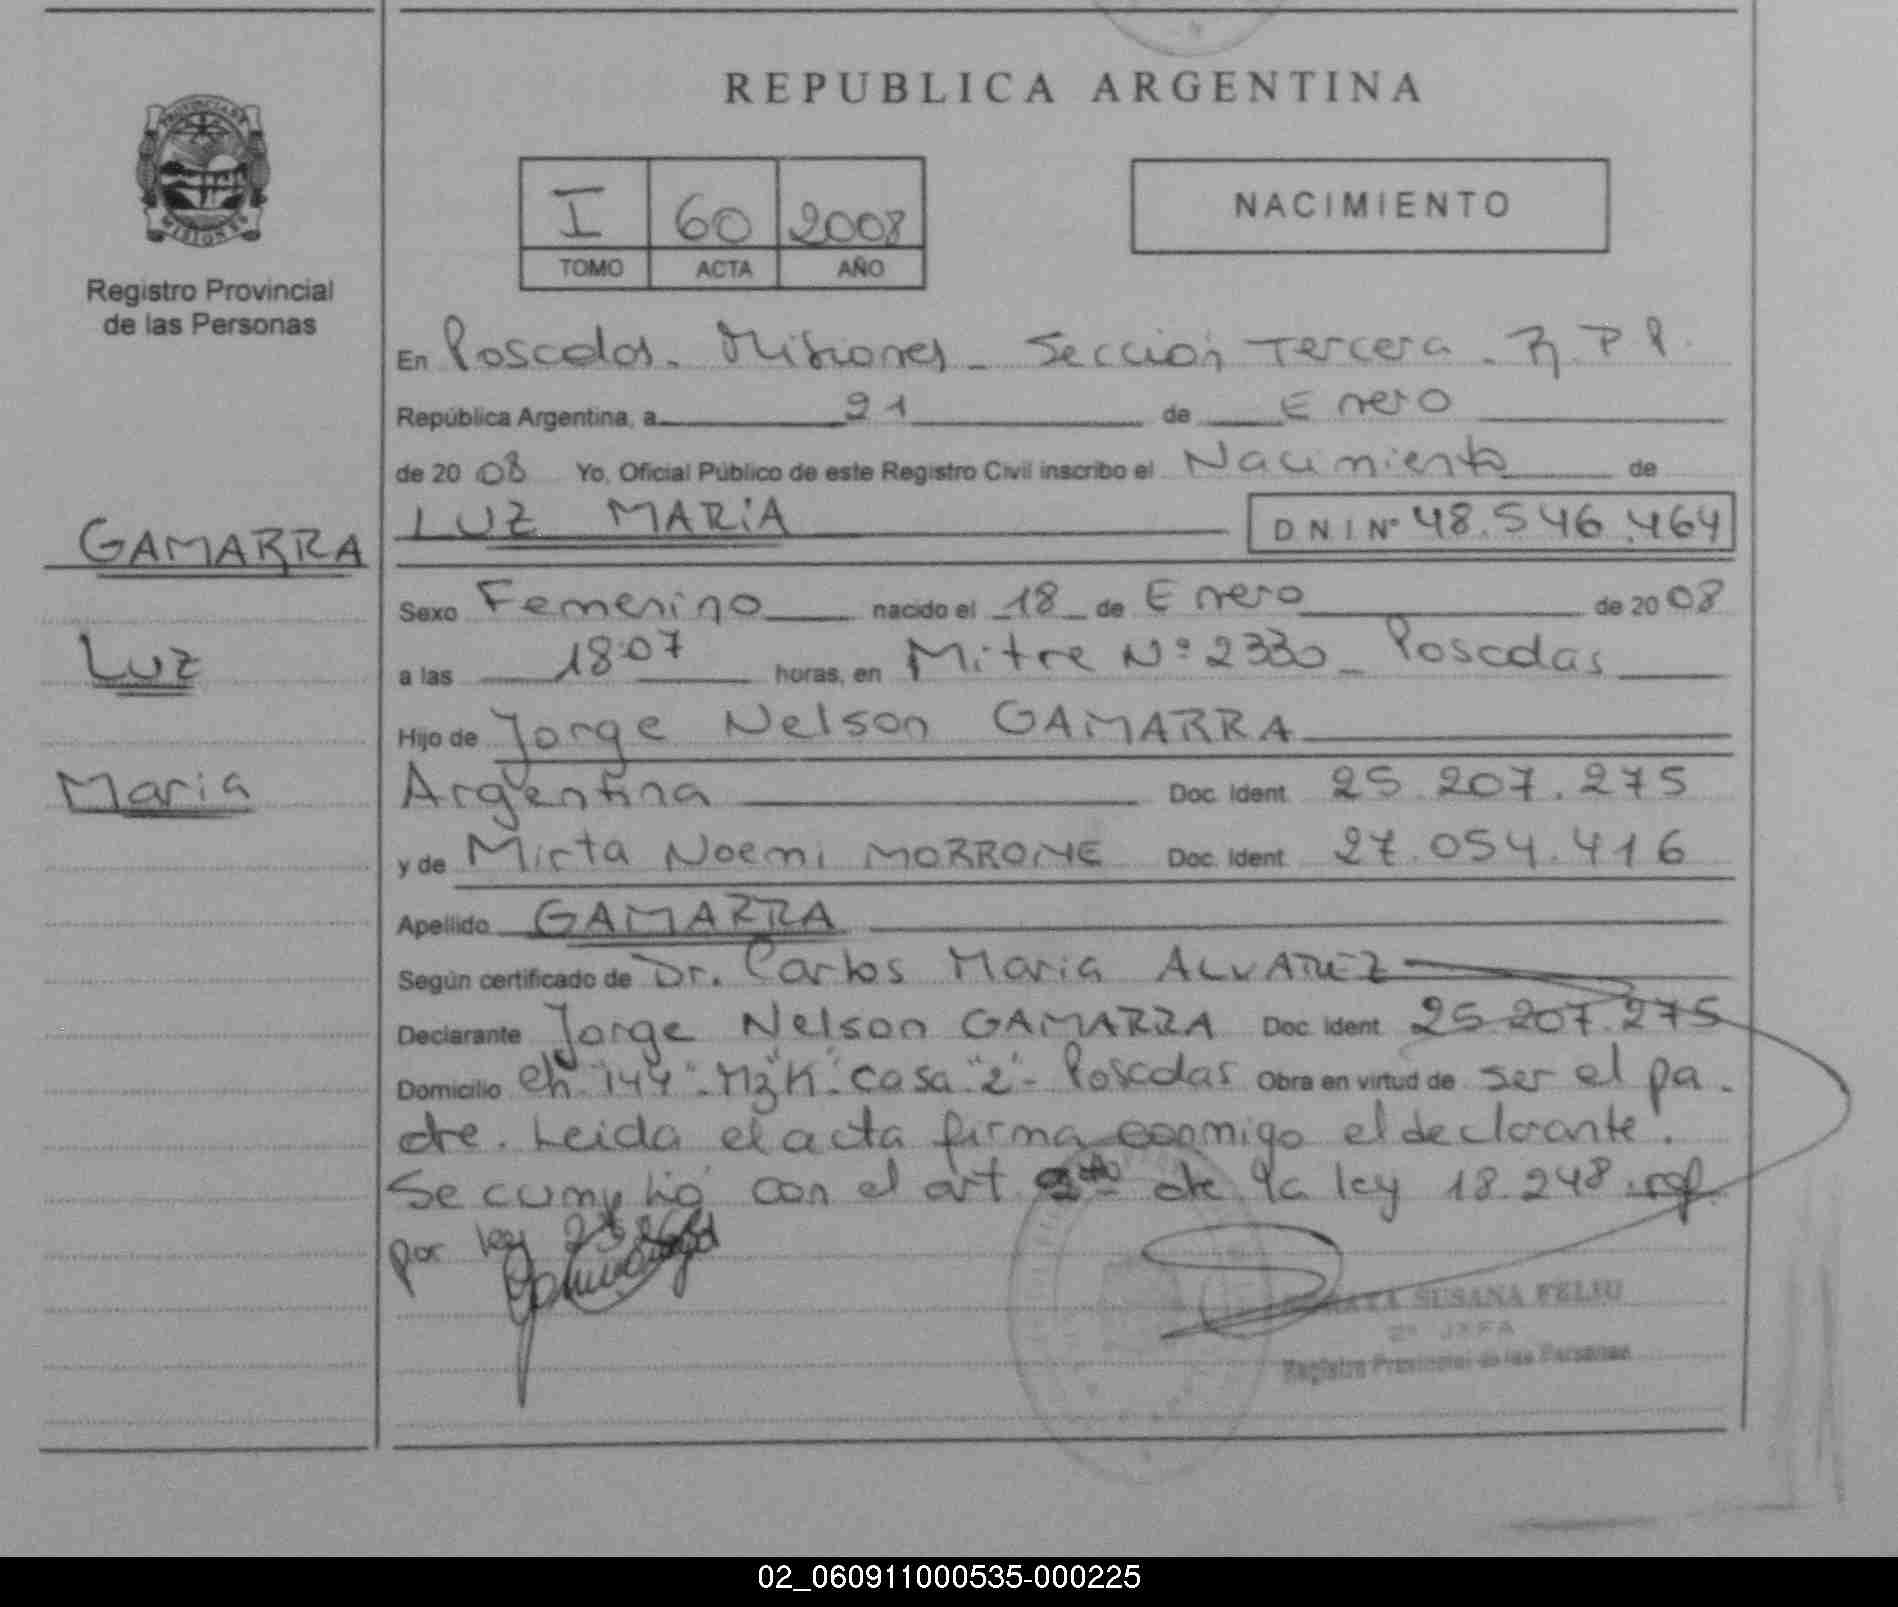 REPUBLICA ARGENTINA
PROVINCIA DE
MISIONES
Registro Provincial
de las Personas
I 60 2008
TOMO ACTA AÑO
NACIMIENTO
En Posadas. Misiones - Sección Tercera. R.P.P.
República Argentina, a 21 de Enero
de 2008 Yo, Oficial Público de este Registro Civil inscribo el Nacimiento de
LUZ MARIA DNI Nº 48.546.464
GAMARRA
Luz
Maria
Sexo Femenino nacido el 18 de Enero de 2008
a las 18:07 horas, en Mitre Nº 2330 - Posadas
Hijo de Jorge Nelson GAMARRA
Argentina Doc. Ident. 25.207.275
y de Mirta Noemi MORRONE Doc. Ident. 27.054.416
Apellido GAMARRA
Según certificado de Dr. Carlos Maria ALVAREZ
Declarante Jorge Nelson GAMARRA Doc. Ident. 25.207.275
Domicilio Ch "144" - Mz "K" casa "2" - Posadas Obra en virtud de ser el pa-
dre. Leida el acta firma conmigo el declarante.
Se cumplió con el art de la ley 18.248 ref.
por ley
SUSANA FELIU
2º JEFA
Registro Provincial de las Personas
02_060911000535-000225